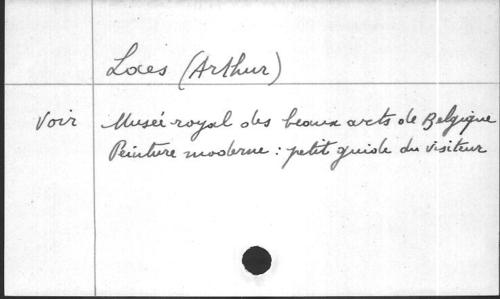 Laes (Arthur)
Voir Musée royal des beaux arts de Belgique
Peinture moderne : petit guide du visiteur